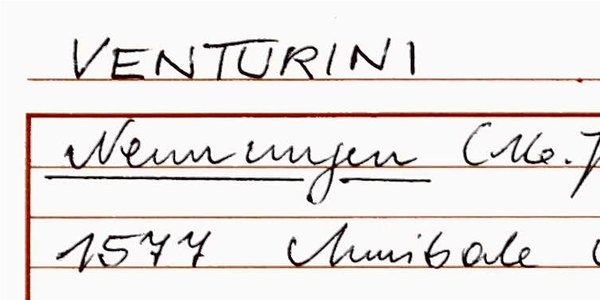 VENTURINI
Nennungen
1577 Annibale